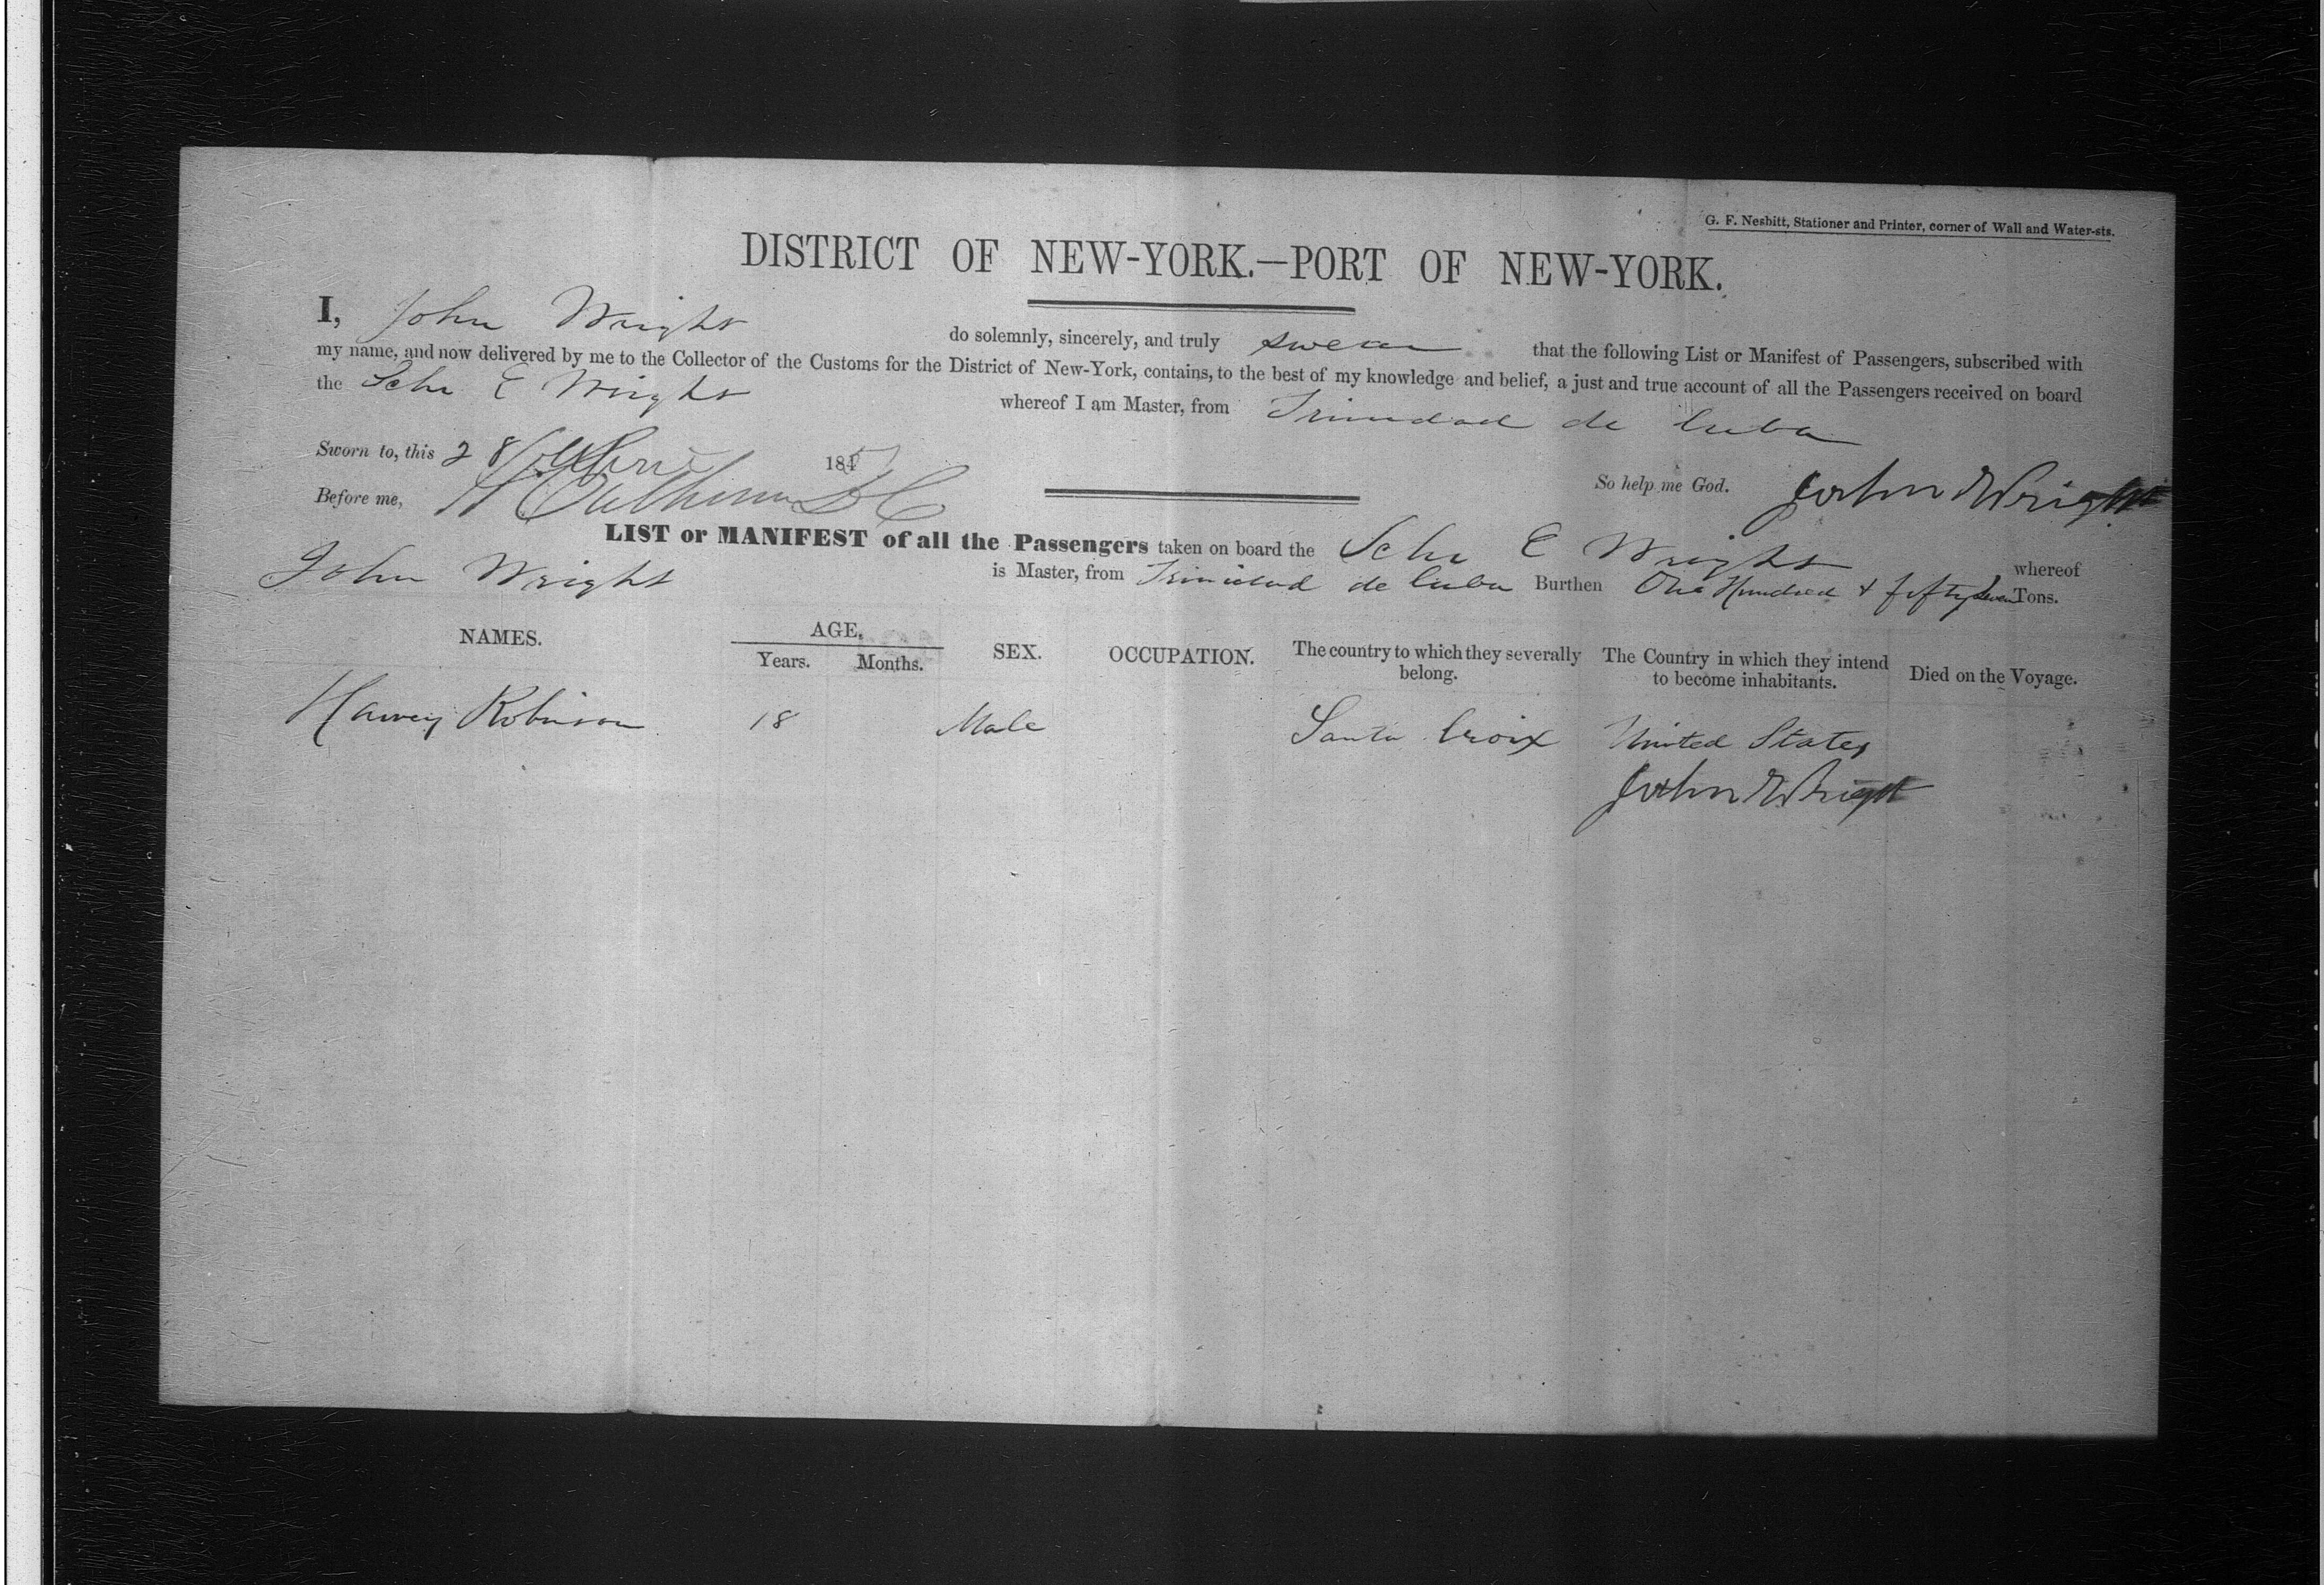 G. F. Nesbitt, Stationer and Printer, corner of Wall and Water-sts.
DISTRICT OF NEW-YORK.—PORT OF NEW-YORK.
I, John Wright do solemnly, sincerely, and truly swear that the following List or Manifest of Passengers, subscribed with
my name, and now delivered by me to the Collector of the Customs for the District of New-York, contains, to the best of my knowledge and belief, a just and true account of all the Passengers received on board
the Schr E Wright whereof I am Master, from Trinidad de Cuba
Sworn to, this 28 April 184
So help me God. John Wright
Before me,
LIST or MANIFEST of all the Passengers taken on board the Schr E Wright whereof
John Wright is Master, from Trinidad de Cuba Burthen One Hundred & fifty seven Tons.
NAMES. AGE, Years. Months. SEX. OCCUPATION. The country to which they severally belong. The Country in which they intend to become inhabitants. Died on the Voyage.
Harvey Robinson 18 Male Santa Croix United States
John Wright